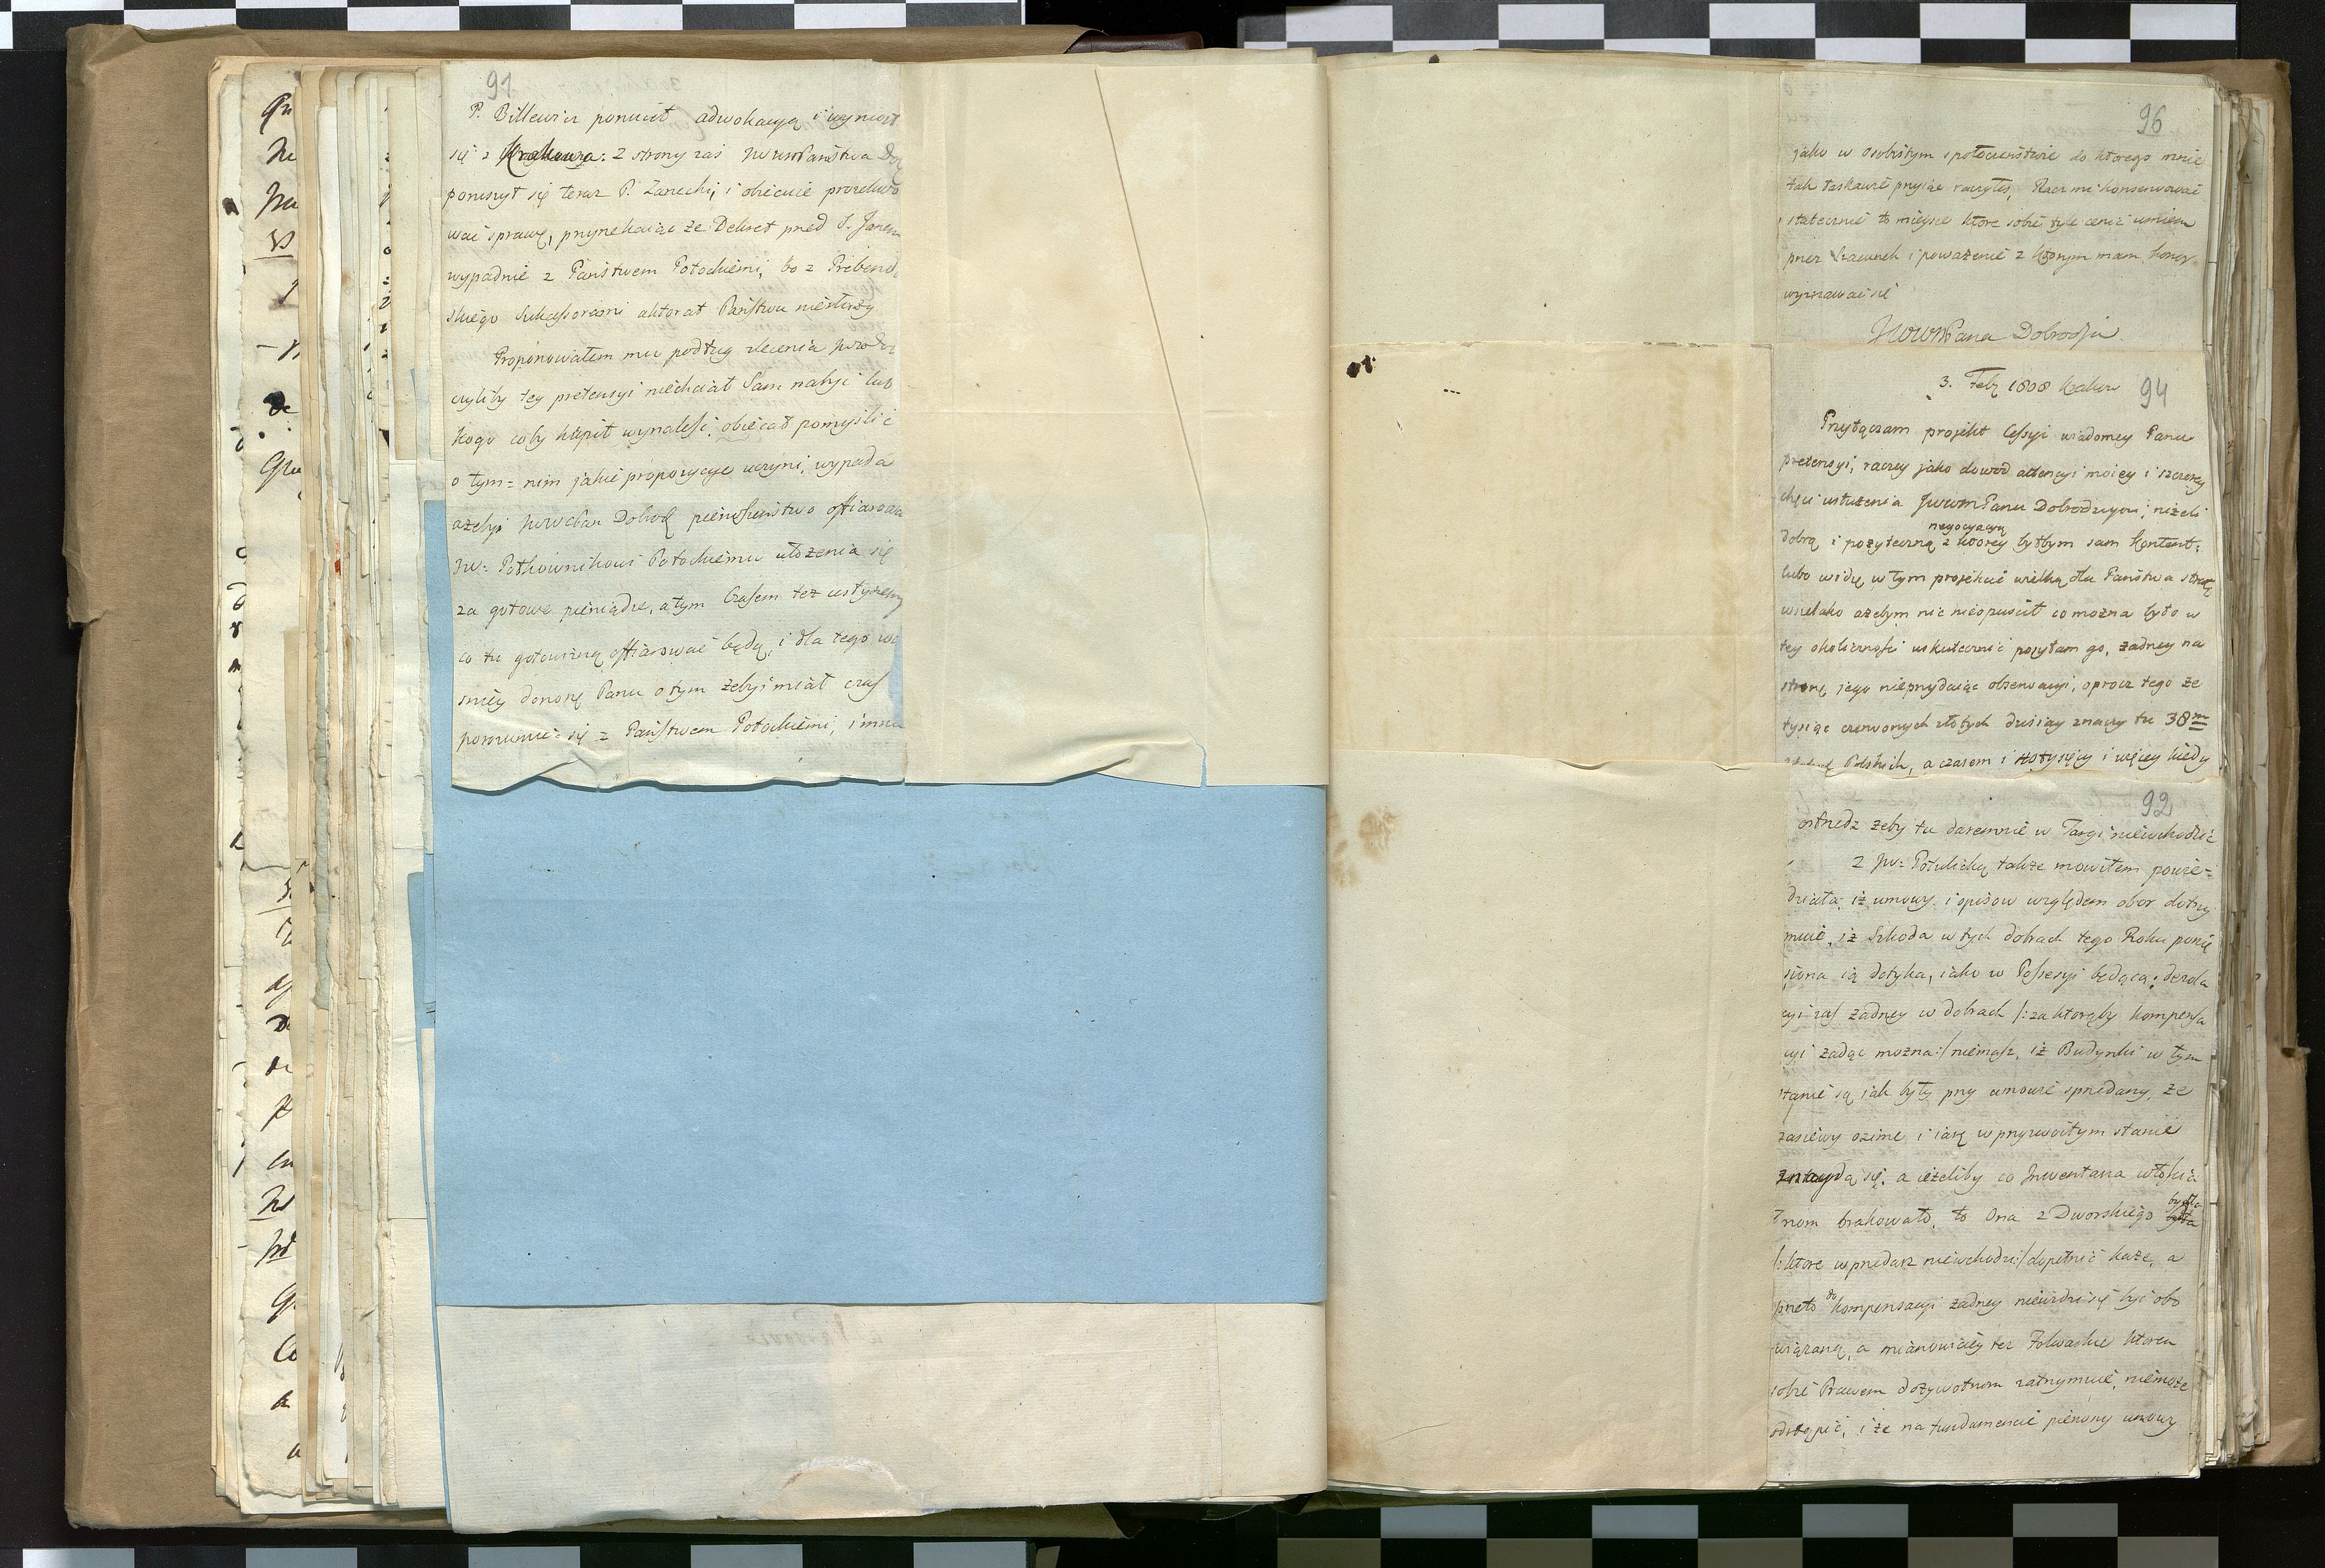 91
P. Billewicz porzucił adwokacyą i wyniosł
się z Krakowa: z strony zaś JWWM Państwa
poruszył się teraz P. Zarecki, i obiecuie prosekwo
wać sprawę, przyrzekaiąc że Dekret przed S. Janem
wypadnie z Państwem Potockiemi, bo z Prebend
skiego Sukcessorami aktorat Państwu niesłuży
Proponowałem mu podług zlecenia
czyliby tey pretensyi niechciał Sam nabyć lub
kogo coby kupił wynaleść, obiecał pomyślić
o tym = nim jakie propozycye uczyni, wypada
ażebyś JWWPan Dobrod pierwszeństwo offiarował
JW: Półkownikowi Potockiemu ułożenia się
za gotowe pieniądze, a tym Czasem też usłyszemy
co tu gotowizną offiarować będą, i dla tego w
śniey donoszę Panu o tym żebyś miał czas
porozumieć się z Państwem Potockiemi, i inna
96
jako w osobistym społeczeństwie do ktorego mnie
tak łaskawie przyiąć raczyłeś, Racz mi konserwować
statecznie to mieysce ktore sobie tyle cenić umiem
przez Szacunek i poważenie z ktorym mam honor
wyznawać się
JWWMPana Dobrodzia
3. Febr 1808 Krakow
94
Przyłączam projekt Cessyi wiadomey Panu
pretensyi, raczey jako dowod attencyi moiey i szczerey
chęci usłużenia JWWMPanu Dobrodzieyowi, niżeli
negocyacyą
dobrą i pożyteczną z ktorey byłbym sam kontent:
lubo widzę w tym projekcie wielką dla Państwa stratę
wszelako ażebym nic nieopuścił co można było w
tey okoliczności uskutecznić posyłam go, żadney na
stronę jego nieprzydaiąc obserwacyi, oprocz tego że
tysiąc czerwonych złotych dzisiay znaczy tu 38m
Polskich, a czasem i 40 tysięcy i więcey kiedy
92
ostrzedz żeby tu daremnie w Targi niewchodzić
Z JW: Potulicką także mowiłem powie=
działa, iż umowy i opisow względem obor dotrzy
muie, iż Szkoda w tych dobrach tego Roku ponie
siona ią dotyka, iako w Possesyi będącą: dezola
cyi zaś żadney w dobrach /: za ktorąby kompensa
cyi żądać można :/ niemasz, iż Budynki w tym
stanie są iak były przy umowie sprzedaży, że
zasiewy ozime i iare w przyzwoitym stanie
znaydą się. a ieżeliby co Inwentarza włościa
nom brakowało, to Ona z Dworskiego bydła
/: ktore w przedaż niewchodzi :/ dopełnić każe, a
przeto do kompensacyi żadney niewidzi się być obo
wiązaną, a mianowicie też Folwarku ktoren
sobie Prawem dożywotnem zatrzymuie, niemoże
odstąpić, i że na fundamencie pierwszy umowy